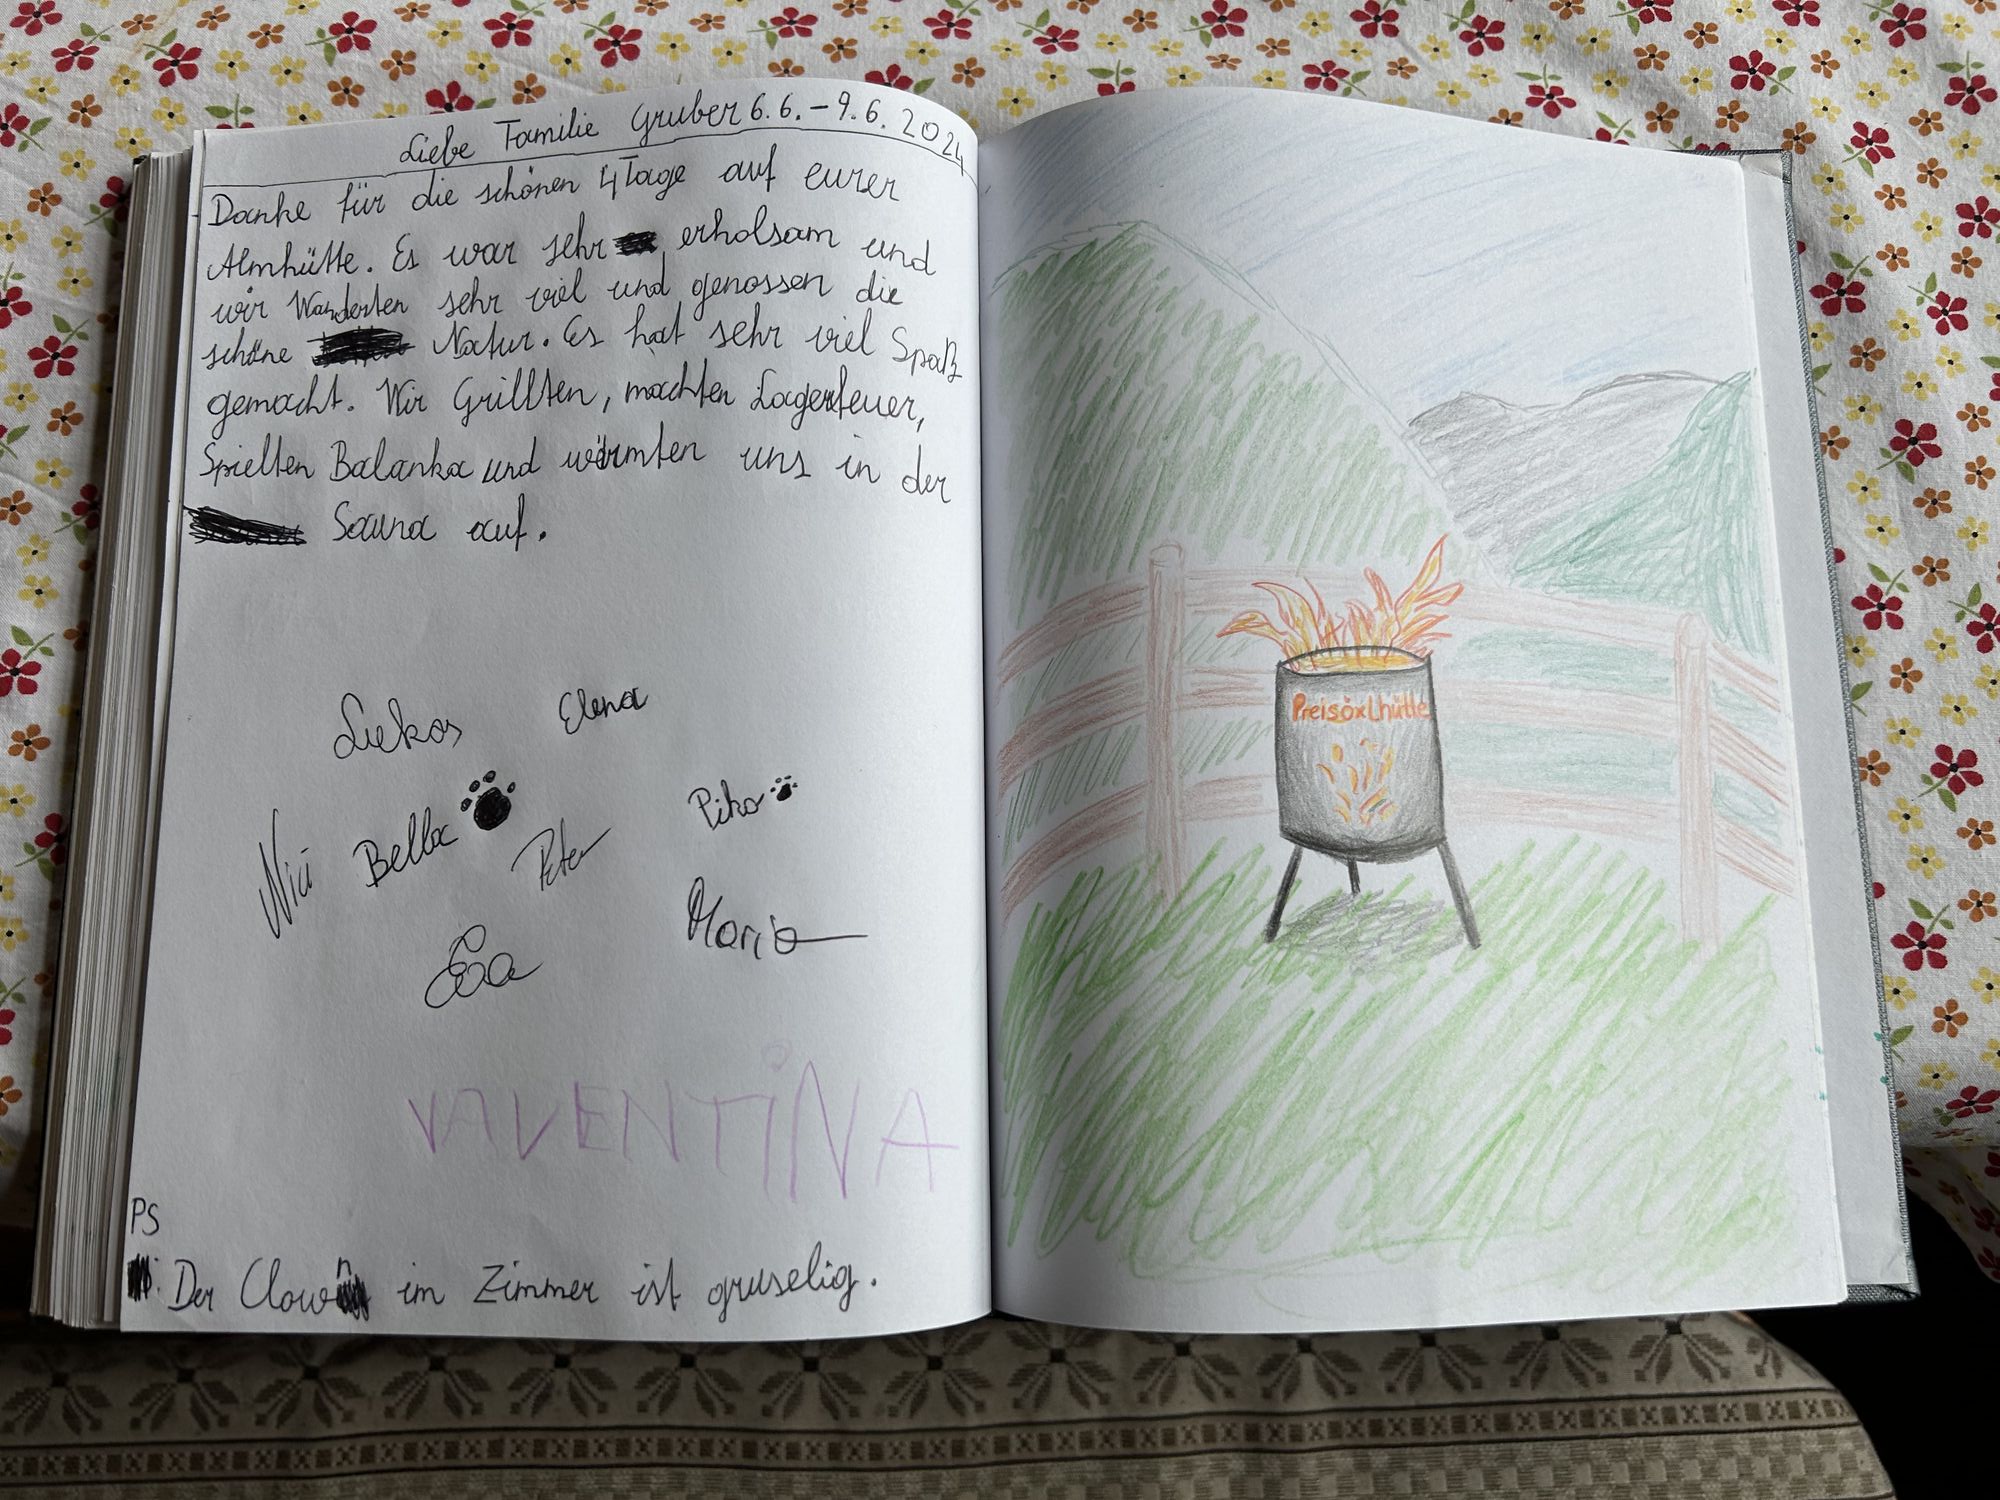 Liebe Familie Gruber 6.6. – 9.6. 2024
Danke für die schönen 4 Tage auf eurer
Almhütte. Es war sehr erholsam und
wir Wanderten sehr viel und genossen die
schöne Natur. Es hat sehr viel Spaß
gemacht. Wir Grillten, machten Lagerfeuer,
Spielten Balanka und wärmten uns in der
Sauna auf.
Lukas Elena
Nici Bella Peter Piko
Eva Maria
VALENTINA
PS
Der Clown im Zimmer ist gruselig.
Preisöxlhütte